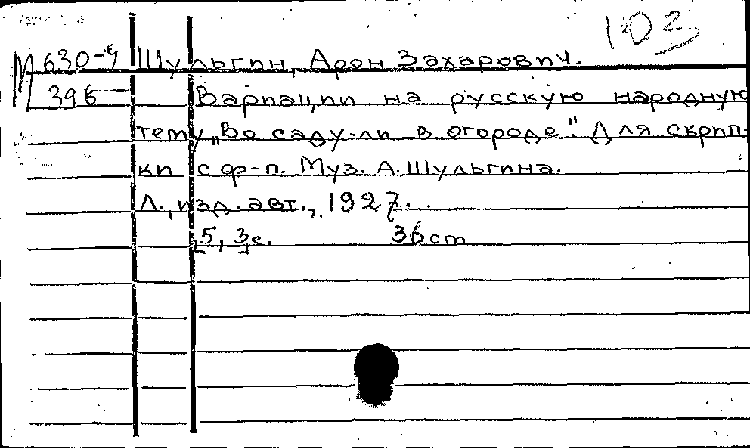 103
М 630-4 Шульгин, Арон Захарович.
396 Вариации на русскую народную
тему „Во саду-ли в огороде". Для скрип-
ки с ф-п. Муз. А.Шульгина.
Л., изд. авт., 1927.
5, 3с. 36 cm